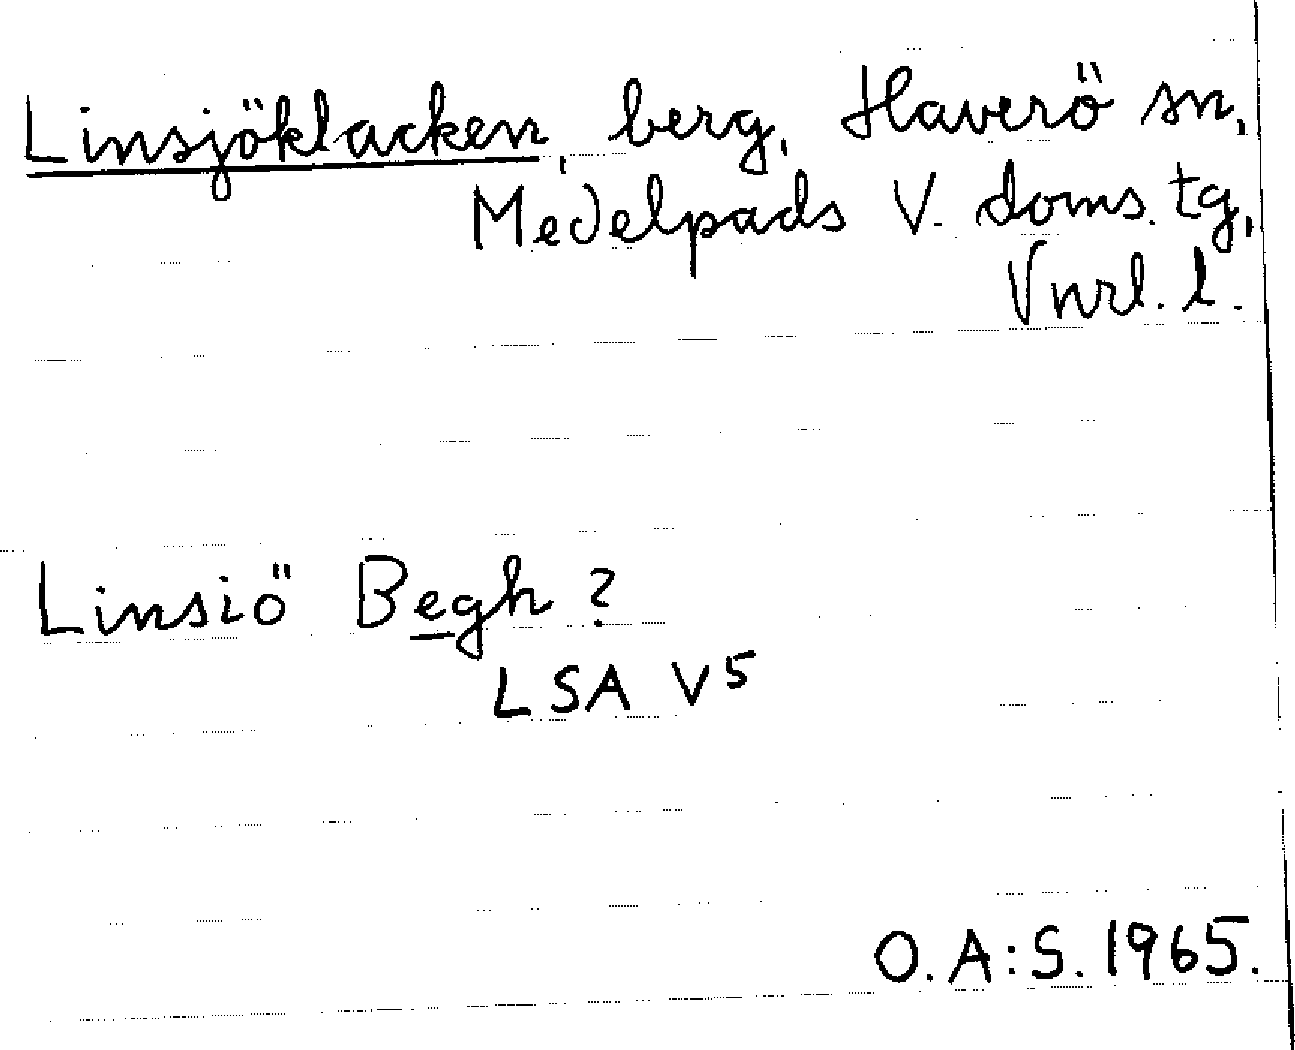 Linsjöklacken, berg, Haverö sn,
Medelpads V. doms. tg,
Vnrl. l.
Linsiö Begh ?
LSA V5
O. A:S. 1965.